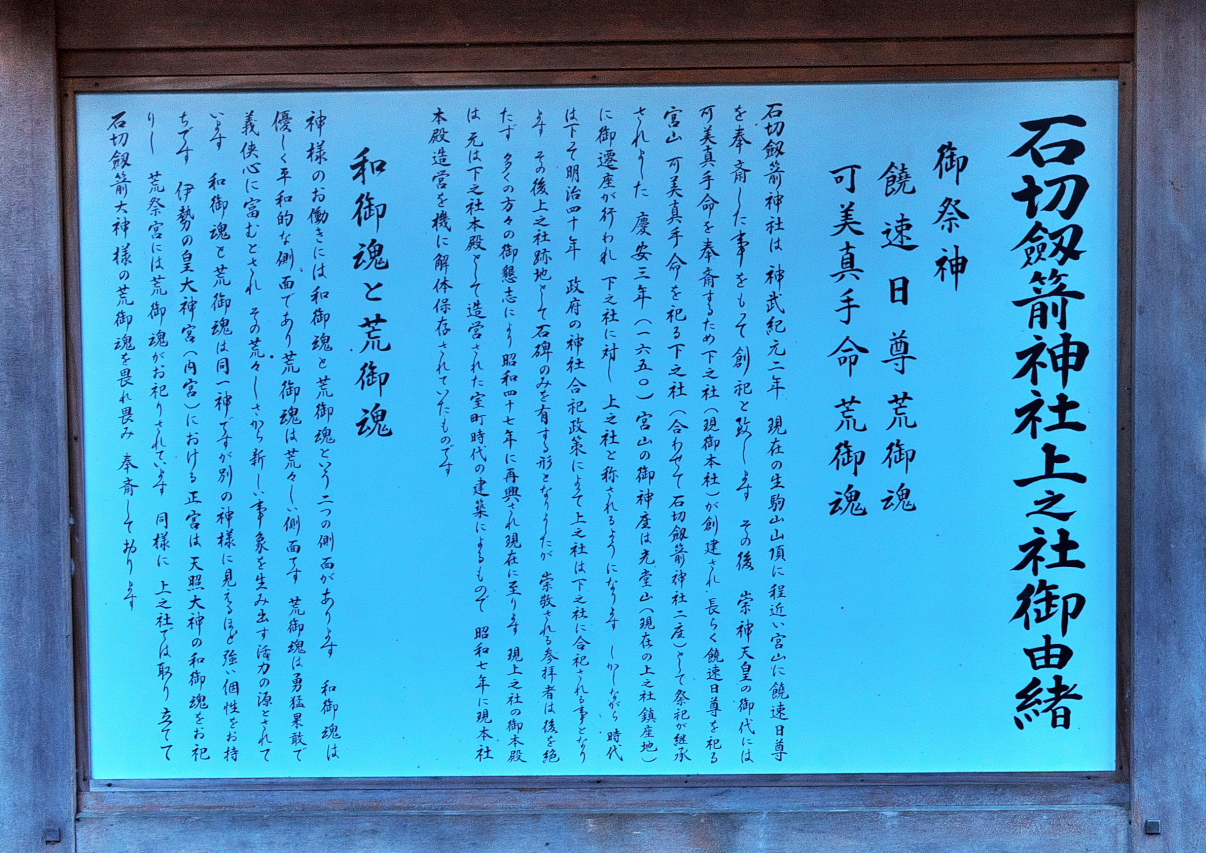 石切劔箭神社上之社御由緒
御祭神
饒速日尊荒御魂
可美真手命荒御魂
石切劔箭神社は 神武紀元二年 現在の生駒山山頂に程近い宮山に饒速日尊
を奉斎した事をもって創祀と致します その後 崇神天皇の御代には
可美真手命を奉斎するため下之社(現御本社)が創建され 長らく饒速日尊を祀る
宮山 可美真手命を祀る下之社(合わせて 石切劔箭神社二座)として祭祀が継承
されました 慶安三年(一六五〇) 宮山の御神座は光堂山(現在の上之社鎮座地)
に御遷座が行われ 下之社に対し 上之社と称されるようになります しかしながら 時代
は下って明治四十年 政府の神社合祀政策によって上之社は下之社に合祀される事となり
ます その後上之社跡地として石碑のみを有する形となりましたが 崇敬される参拝者は後を絶
たず 多くの方々の御懇志により 昭和四十七年に再興され現在に至ります 現上之社の御本殿
は 元は下之社本殿として造営された室町時代の建築によるもので 昭和七年に現本社
本殿造営を機に解体保存されていたものです
和御魂と荒御魂
神様のお働きには和御魂と荒御魂という 二つの側面があります 和御魂は
優しく平和的な側面であり 荒御魂は荒々しい側面です 荒御魂は勇猛果敢で
義侠心に富むとされ その荒々しさから新しい事象を生み出す活力の源とされて
います 和御魂と荒御魂は同一神ですが別の神様に見えるほど強い個性をお持
ちです 伊勢の皇大神宮(内宮)における正宮は 天照大神の和御魂をお祀
りし 荒祭宮には荒御魂がお祀りされています 同様に 上之社では取り立てて
石切劔箭大神様の荒御魂を畏れ畏み 奉斎して居ります